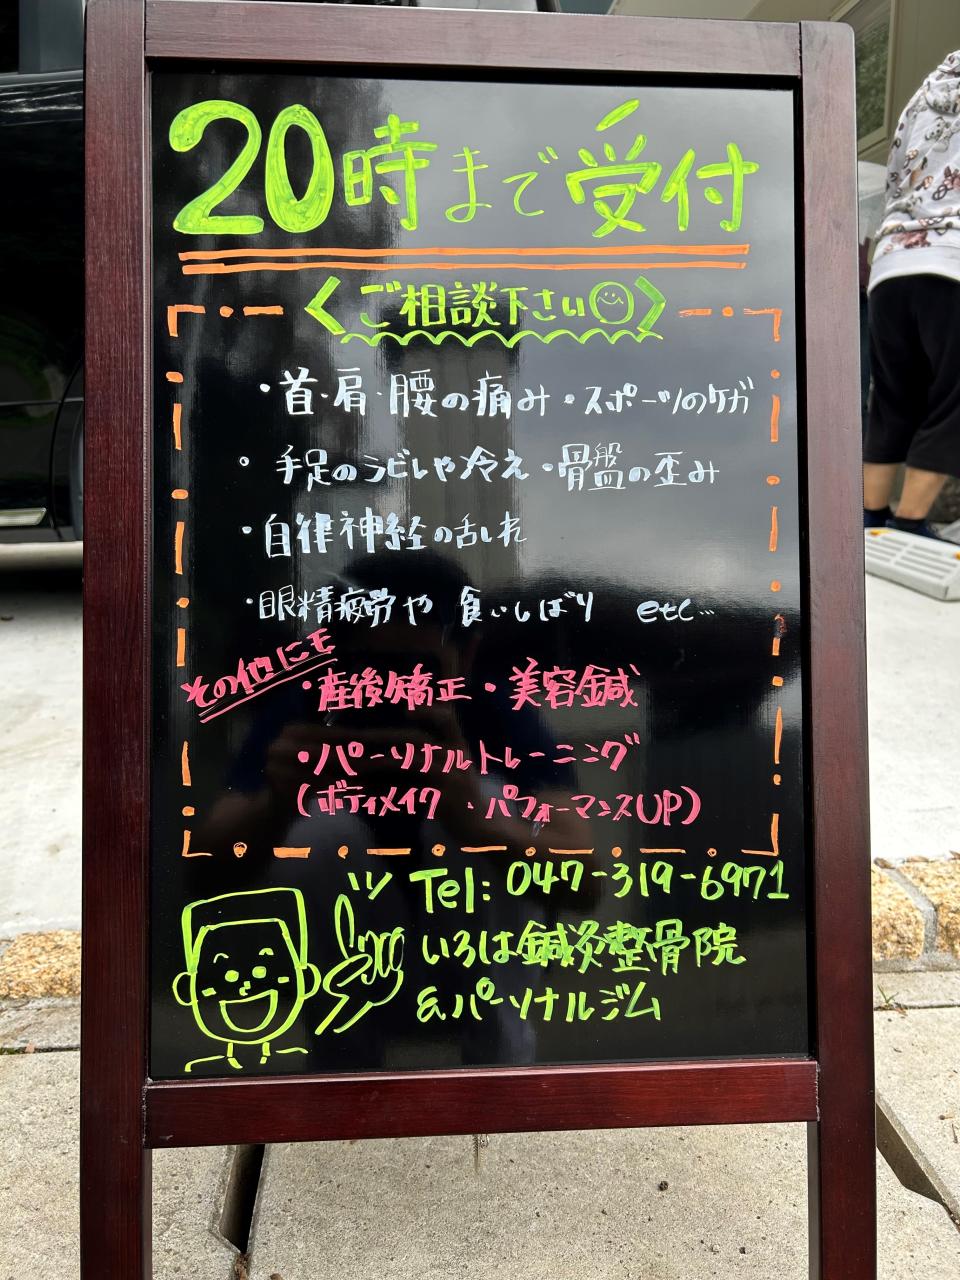 20時まで受付
〈ご相談下さい〉
・首・肩・腰の痛み・スポーツのケガ
・手足のうびしや冷え・骨盤の歪み
・自律神経の乱れ
・眼精疲労や 食いしばり etc…
その他にモ
・産後矯正・美容鍼
・パーソナルトレーニング
(ボディメイク・パフォーマンスUP)
Tel: 047-319-6971
いろは鍼灸整骨院
&パーソナルジム